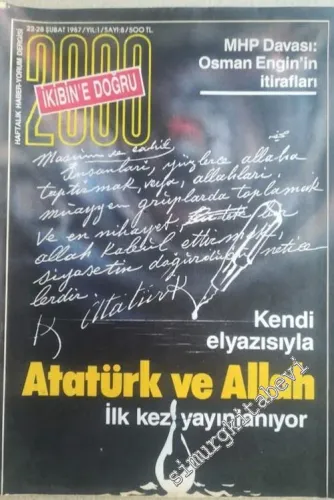 22-28 ŞUBAT 1987 / YIL:1 / SAYI:8 / 500 TL.
HAFTALIK HABER-YORUM DERGİSİ
2000
İKİBİN'E DOĞRU
MHP Davası:
Osman Engin'in
itirafları
insanları, yüzlerce allaha
taptırmak veya, allahları
muayyen gruplarda toplamak
Ve en nihayet, bir
allah kabul ettirmek,
siyasetin doğurduğu netice
lerdir
K Atatürk
Kendi
elyazısıyla
Atatürk ve Allah
İlk kez yayınlanıyor
simurgkitabevi.com